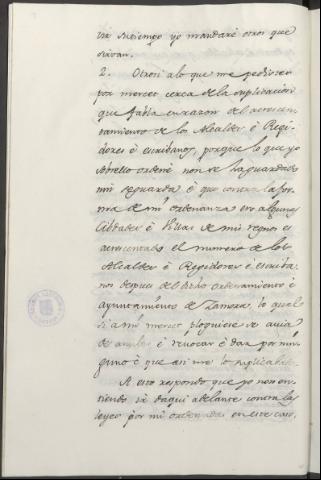 un susiempo yo mandaré otros que
sirvan.
2. Otrosi alo que me pedisteis
por merced cerca dela suplicacion
que fabla en razon del acrecen-
tamiento de los Alcaldes é Regi-
dores é escribanos, porque lo que yo
sobrello ordené non se ha guardado
nin se guarda é que contra la for-
ma de mi ordenanza en algunas
Cibdades é Villas de mis regnos es
acrecentado el numero de los
Alcaldes é Regidores é escriba-
nos despues del dicho ordenamiento é
ayuntamiento de Zamora, lo qual
si á mi merced ploguiese se avia
de anular é revocar é dar por nin-
guno é que asi me lo suplicabades.
A esto respondo que yo non en-
tiendo ir daqui adelante contra las
leyes por mi ordenadas en este caso,